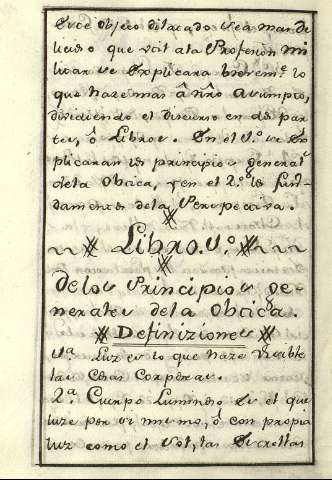 este objeto dilatado sea mas de
licioso que util a la Profesion mi
litar se Explicara brevemte. lo
que haze mas â nrô Asumpto,
dividiendo el discurso en dos par
tes, ô Libros. En el 1.º se Ex
plicaran los principios general.s
dela Optica, y en el 2.º los fun
damentos dela Perspectiva.
Libro. 1.º
delos Principios ge
nerales dela Optica.
Definiziones
1.ª Luz es lo que haze visible
las Cosas Corporeas.
2.ª Cuerpo Luminoso es el que
luze por si mismo, ô con propia
luz como el Sol, las Estrellas